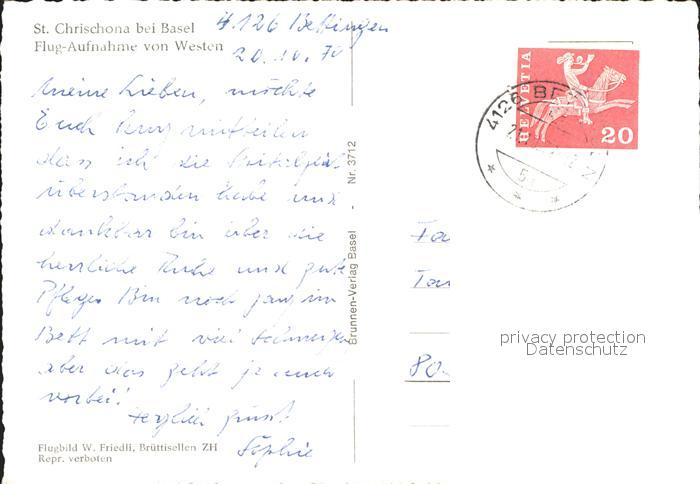 St. Chrischona bei Basel
Flug-Aufnahme von Westen
4126 Bettingen
20.10.70
Meine Lieben, möchte
Euch kurz mitteilen
dass ich die
überstanden habe und
dankbar bin über die
herrliche Ruhe und gute
Pflege. Bin noch ganz im
Bett mit viel Schmerzen
aber das geht ja auch
vorbei!
Herzlich grüsst
Sophie
Flugbild W. Friedli, Brüttisellen ZH
Repr. verboten
Brunnen-Verlag Basel - Nr. 3712
HELVETIA
20
4126 BE
Fa
Tan
80
privacy protection
Datenschutz